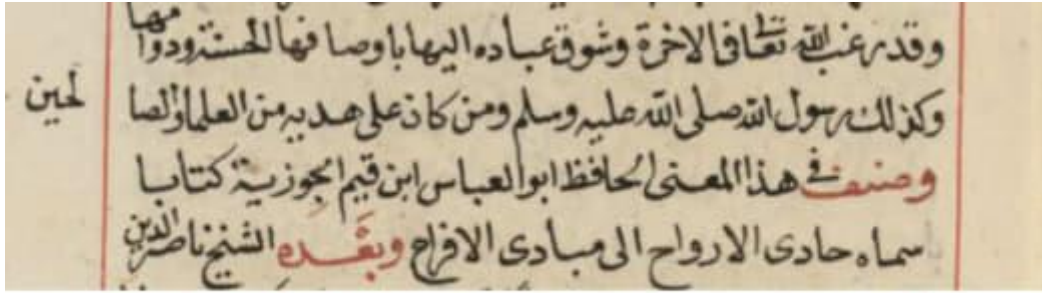 وقد رغب الله تعالى في الاخرة وشوق عباده اليها باوصافها الحسنة ودوامها
وكذلك رسول الله صلى الله عليه وسلم ومن كان على هديه من العلما والصا
لحين
وصنف في هذا المعنى الحافظ ابو العباس ابن قيم الجوزية كتابا
سماه حادى الارواح الى مبادى الافراح وبعده الشيخ ناصر الدين